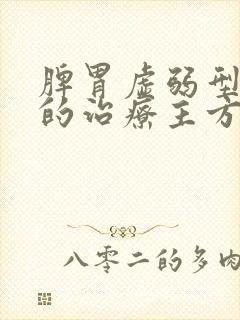 脾胃虚弱型
的治疗主方
八零二的多肉